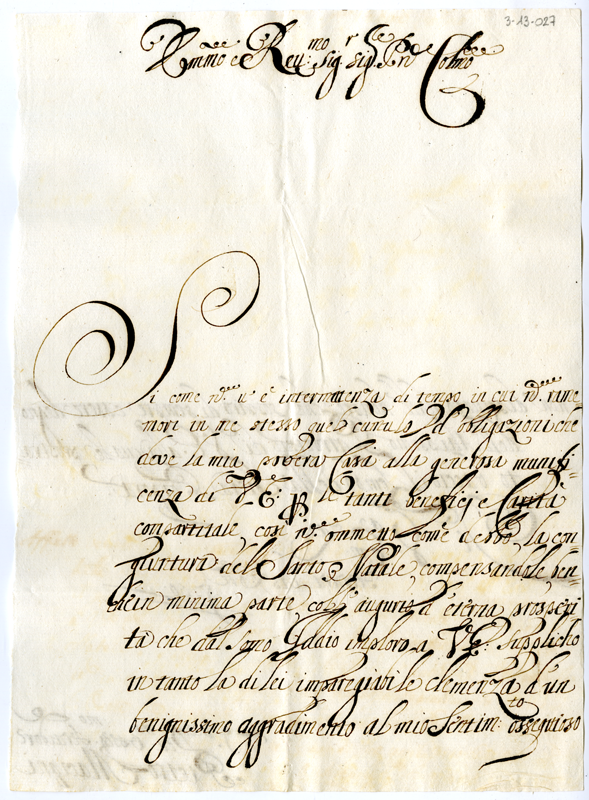 3-13-027
Emmo e Reu:mo Sig.r Sig.r Pne Colmo
Si come nō u' è intermittenza di tempo in cui nō rame
mori in me stesso quel cumulo d'obbligazioni che
deve la mia povera Casa alla generosa munifi=
cenza di V. E: P le tanti beneficj e Carità
compartitale, cosi nō ommetto come debbo, la con=
giuntura del Santo Natale, compensandole ben=
che in minima parte coll' augurio d' eterna prosperi
tà che dal somo Iddio imploro a V. E: Supplicho
in tanto la di lei impareggiabile clemenza d'un
benignissimo aggradimento al mio Sentim:to osseguioso